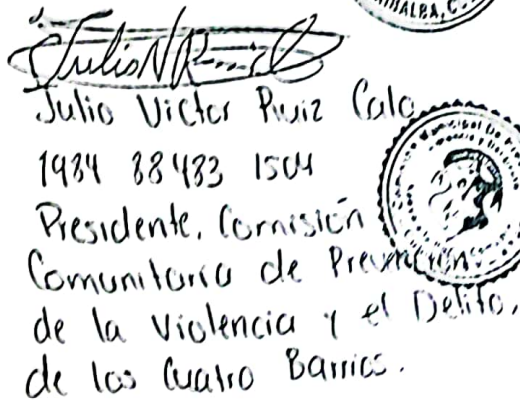 Julio Victor Ruiz Calo
1984 88483 1504
Presidente, Comisión
Comunitaria de Prevención
de la Violencia y el Delito,
de los Cuatro Barrios.